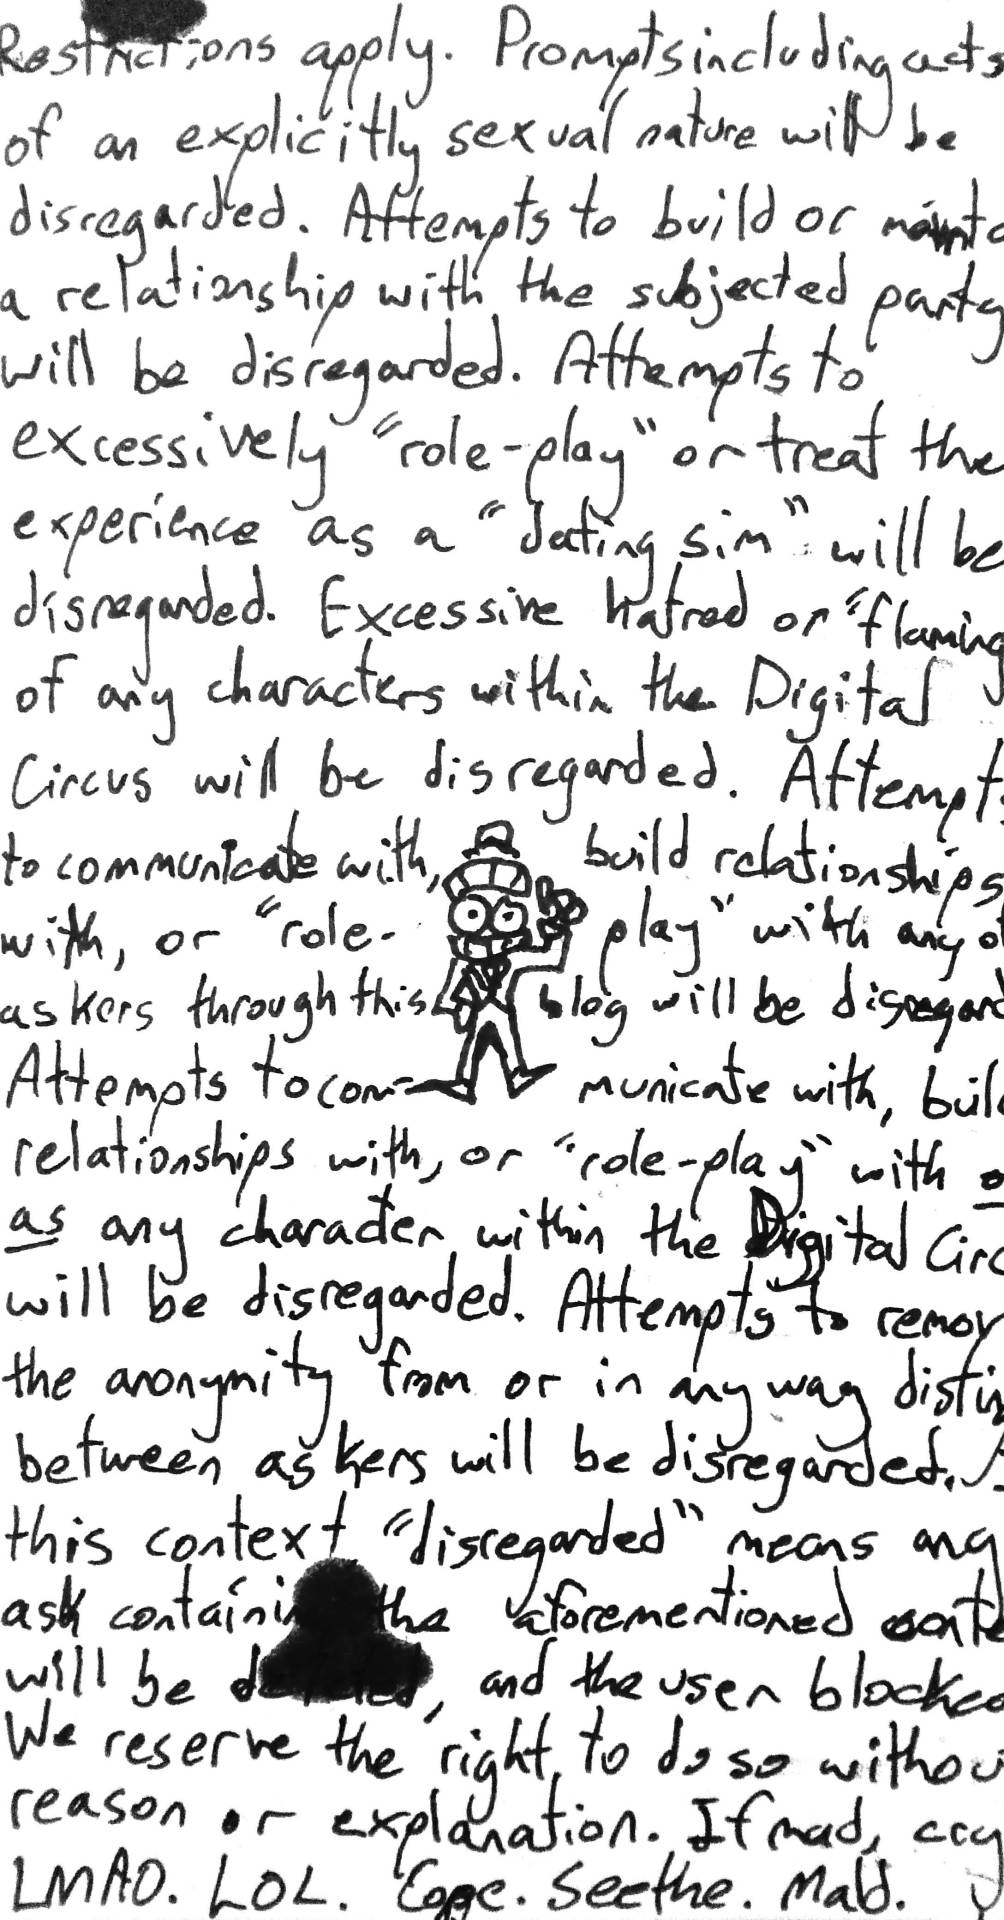 Restrictions apply. Prompts including acts
of an explicitly sexual nature will be
disregarded. Attempts to build or
a relationship with the subjected party
will be disregarded. Attempts to
excessively "role-play" or treat the
experience as a "dating sim" will be
disregarded. Excessive hatred or "flaming
of any characters within the Digital
Circus will be disregarded. Attempts
to communicate with, build relationships
with, or "role-play" with any o
askers through this blog will be disregard
Attempts to com-municate with, buil
relationships with, or "role-play" with o
as any character within the Digital Circ
will be disregarded. Attempts to remov
the anonymity from or in any way distin
between askers will be disregarded.
this context "disregarded" means any
ask containin the aforementioned conte
will be and the user blocked
We reserve the right to do so withou
reason or explanation. If mad, cry
LMAO. LOL. Cope. Seethe. Mald.